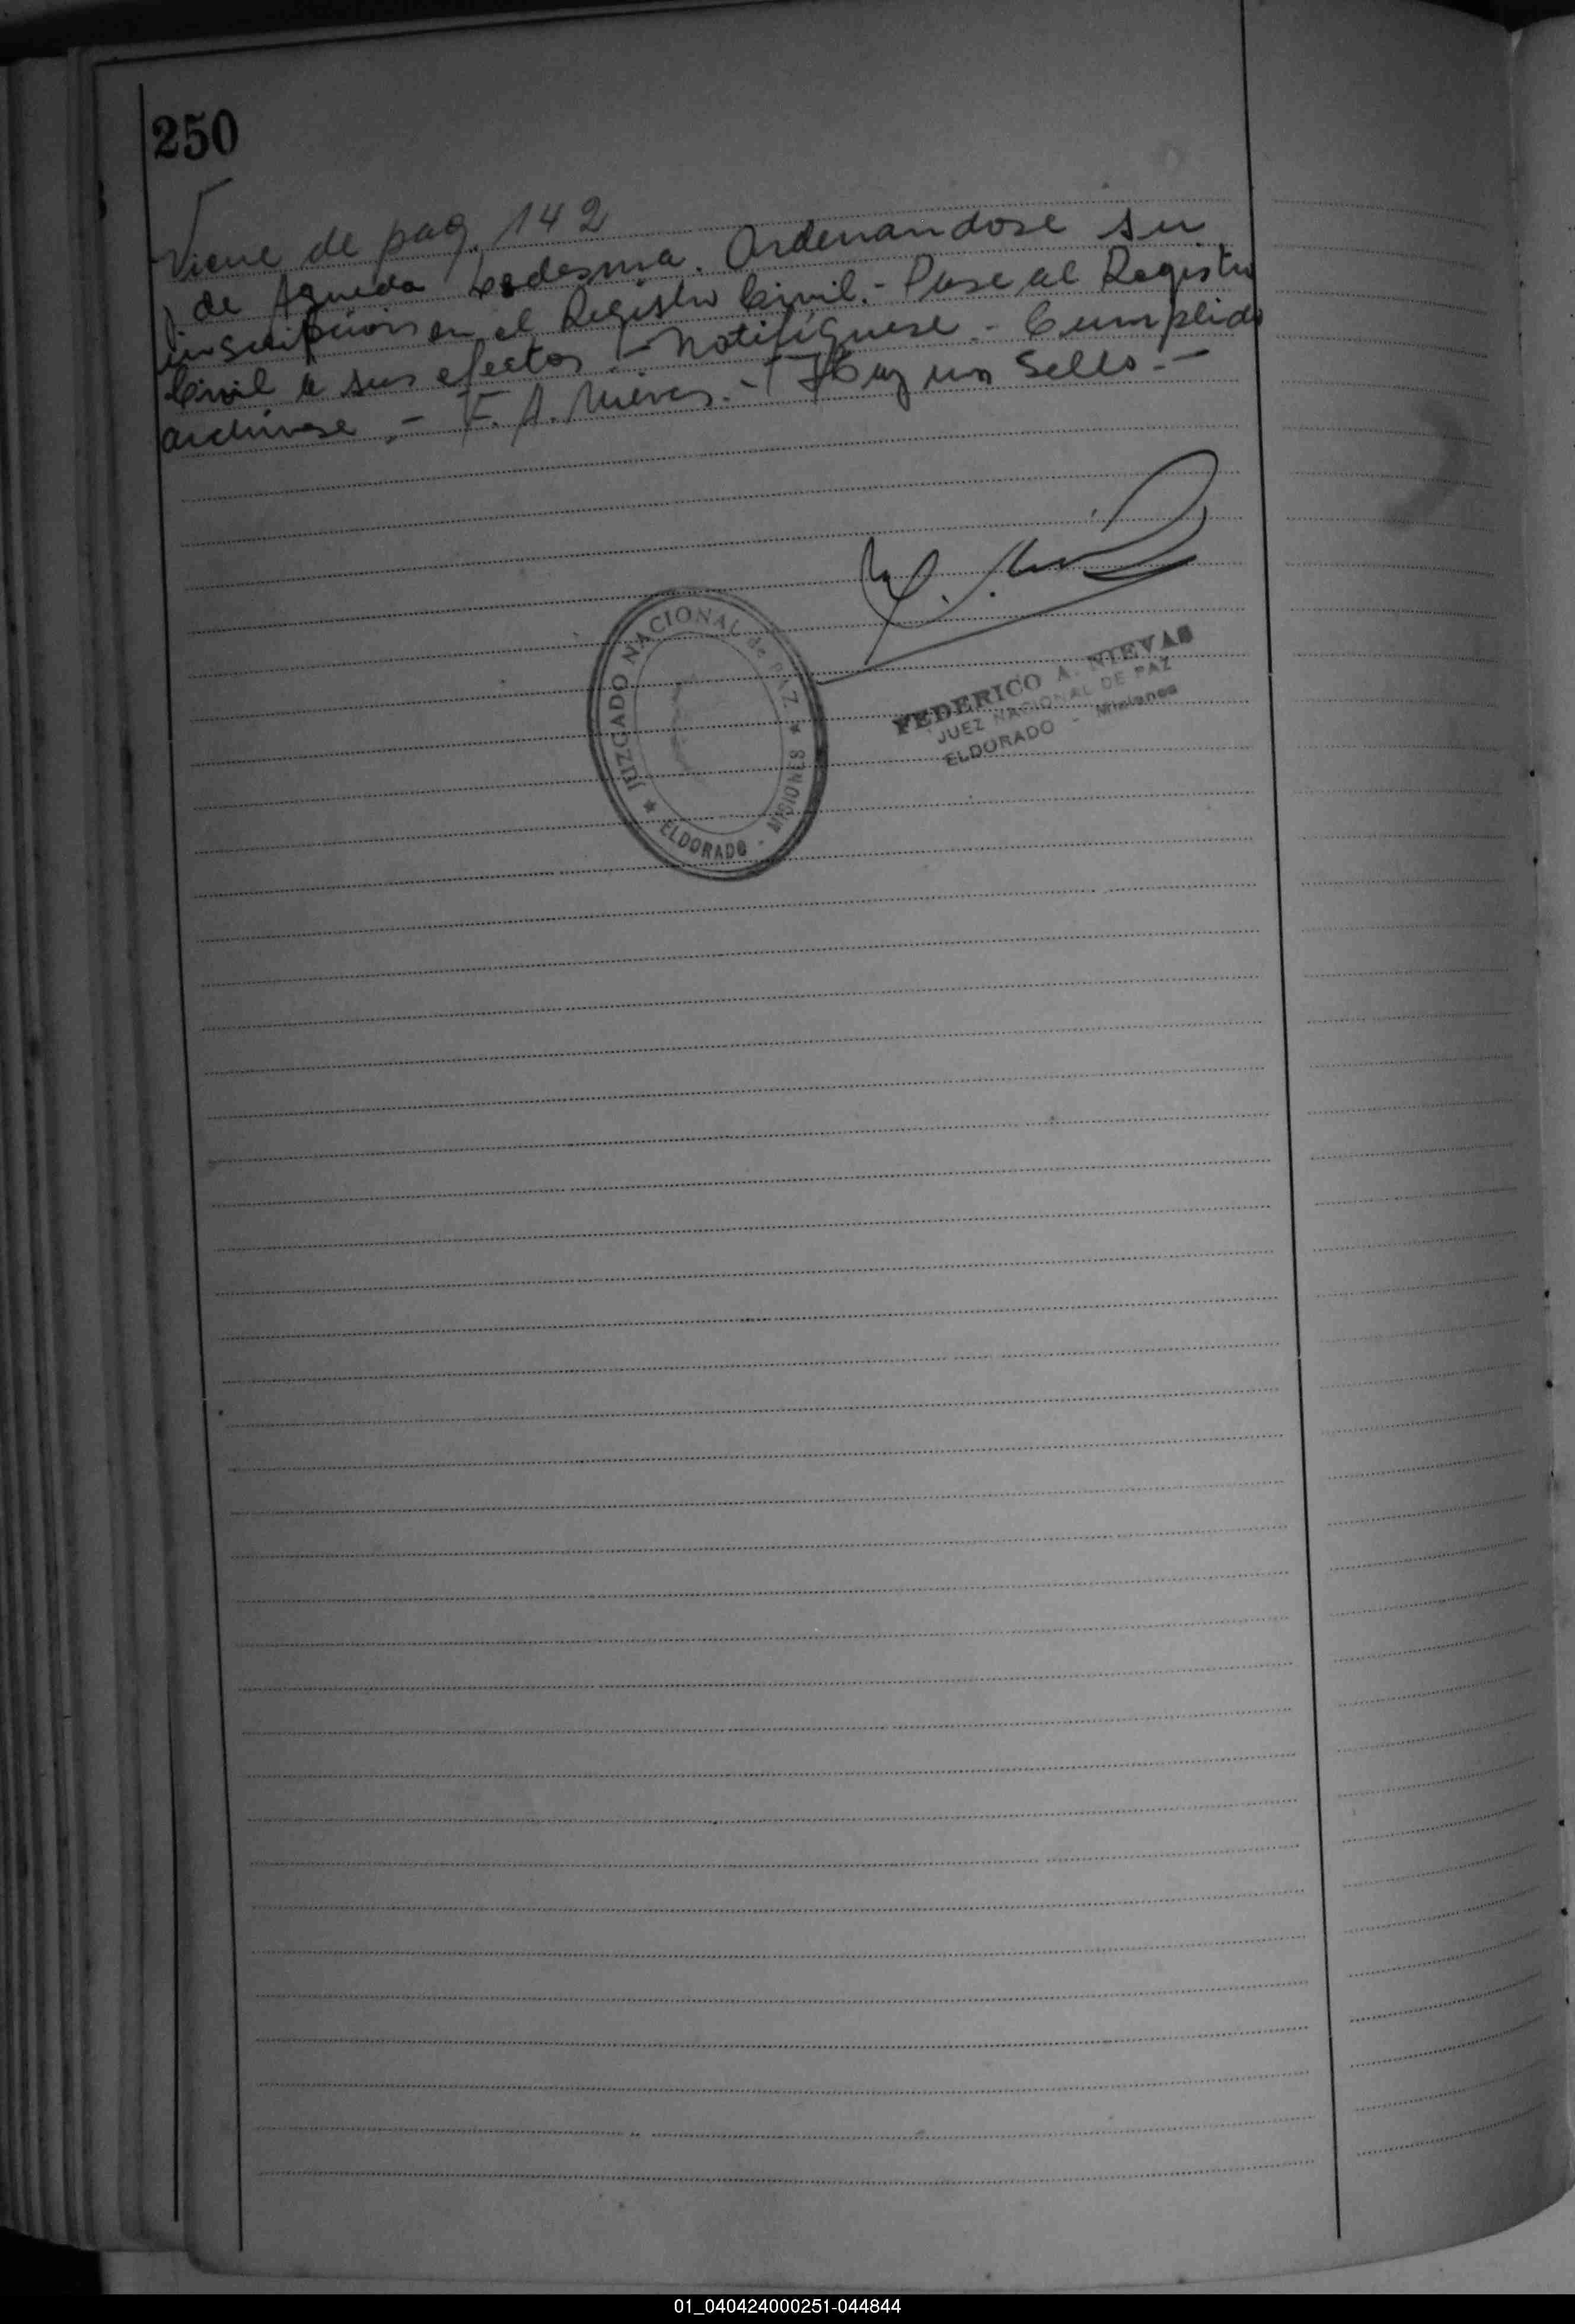 250
Viene de pag. 142
de Agueda Ledesma. Ordenandose su
inscripcion en el Registro Civil.- Pase al Registro
Civil a sus efectos.- Notifíquese - Cumplido
archivese.- F. A. Nievas.- Hay un Sello.-
JUZGADO NACIONAL de PAZ ★ ELDORADO - MISIONES ★
FEDERICO A. NIEVAS
JUEZ NACIONAL DE PAZ
ELDORADO - Misiones
01_040424000251-044844